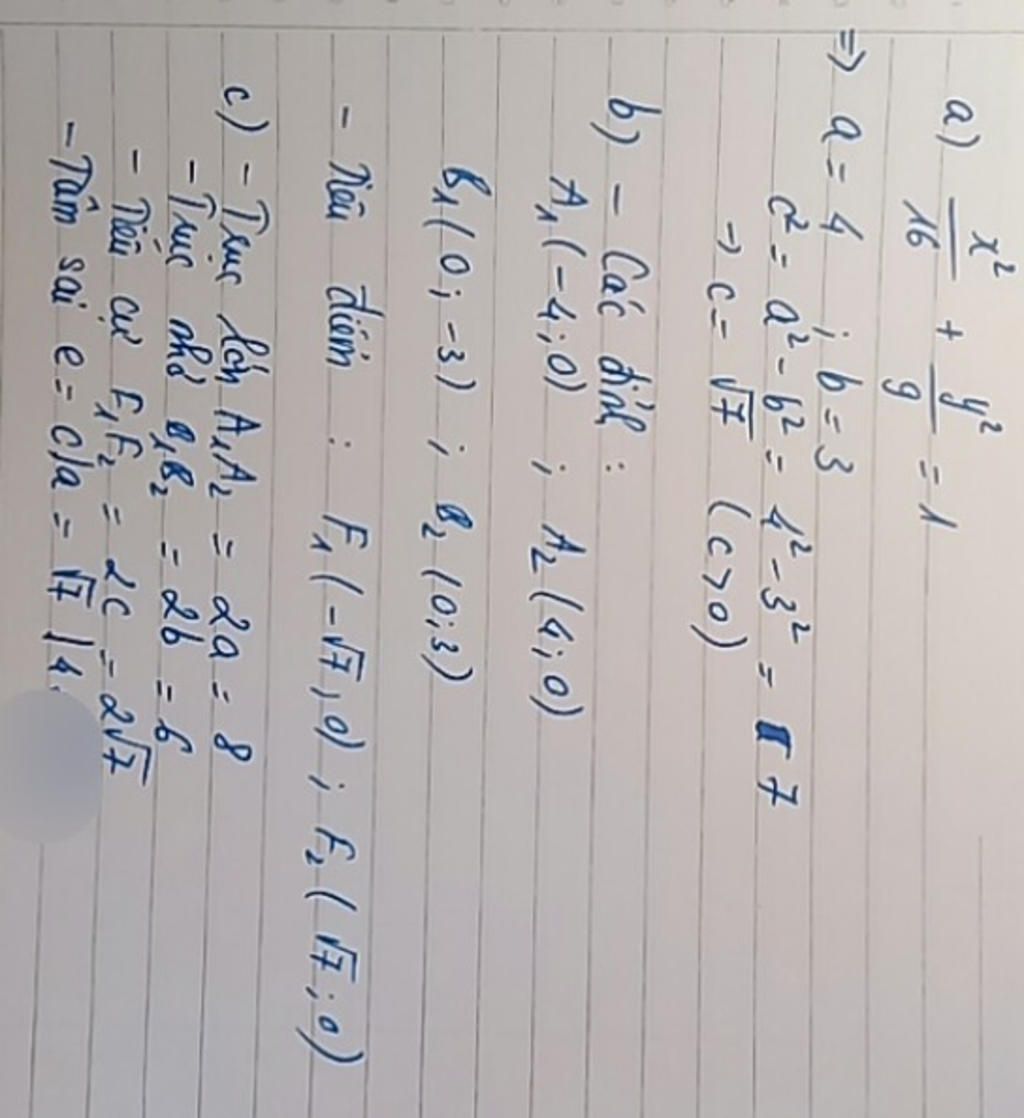 a) x²/16 + y²/9 = 1
=> a = 4 ; b = 3
c² = a² - b² = 4² - 3² = 7
→ c = √7 (c > 0)
b) - Các đỉnh :
A₁(-4; 0) ; A₂(4; 0)
B₁(0; -3) ; B₂(0; 3)
- Tiêu điểm : F₁(-√7, 0) ; F₂(√7; 0)
c) - Trục lớn A₁A₂ = 2a = 8
- Trục nhỏ B₁B₂ = 2b = 6
- Tiêu cự F₁F₂ = 2c = 2√7
- Tâm sai e = c/a = √7/4.